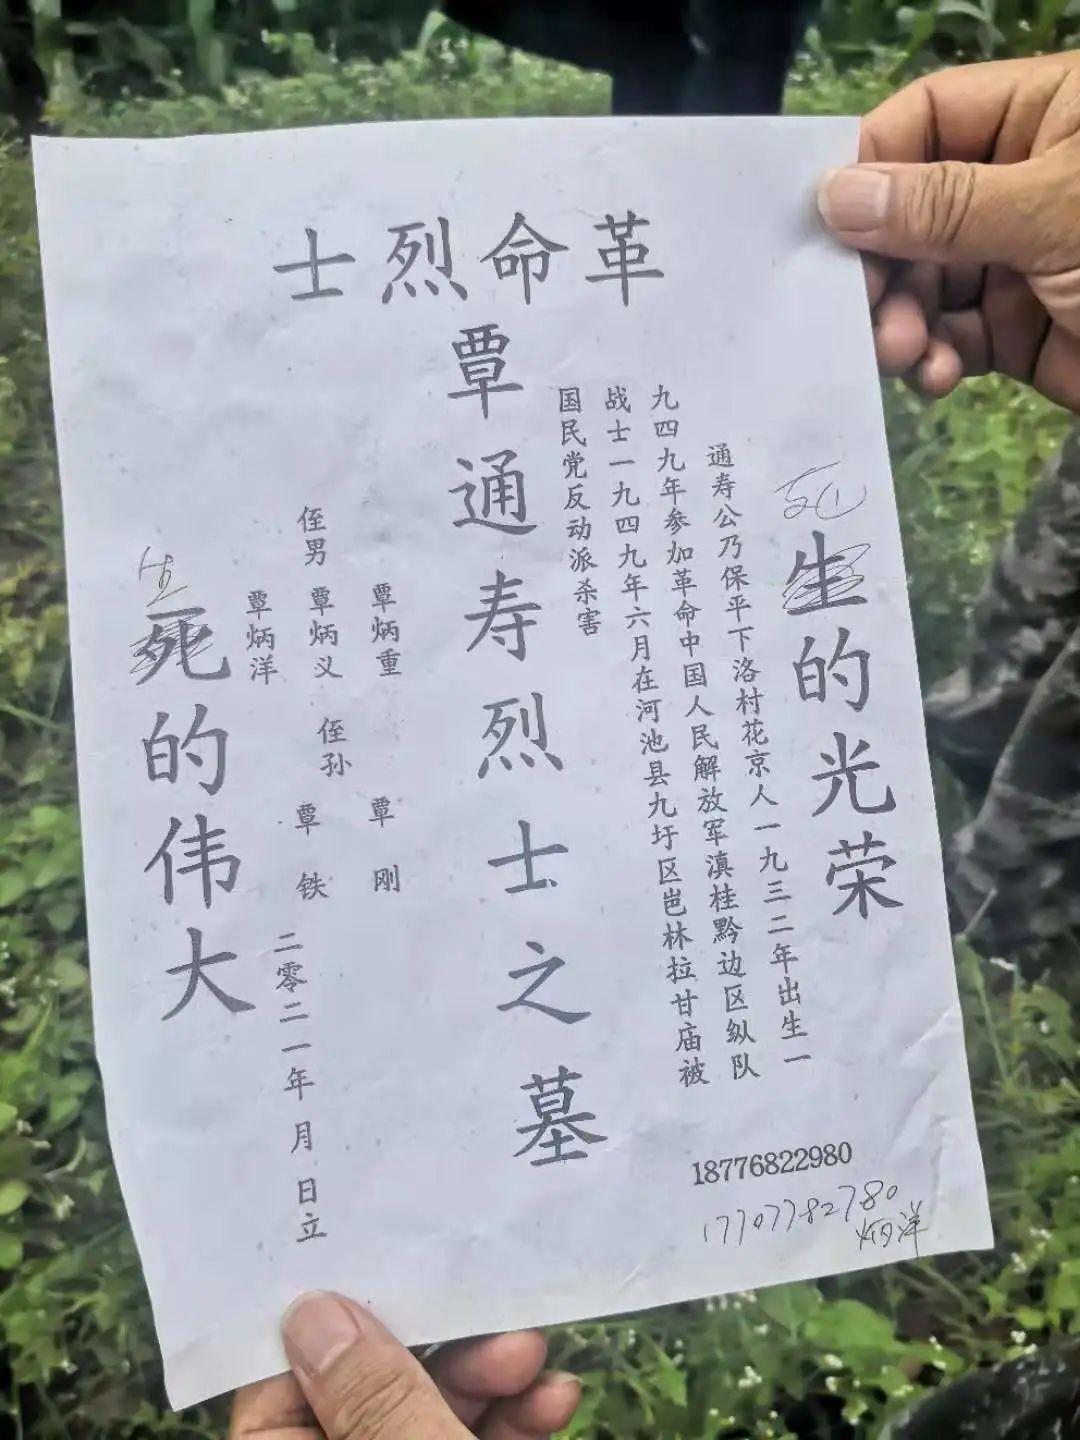 革命烈士
死
生的光荣
通寿公乃保平下洛村花京人一九三二年出生一
九四九年参加革命中国人民解放军滇桂黔边区纵队
战士一九四九年六月在河池县九圩区岜林拉甘庙被
国民党反动派杀害
覃通寿烈士之墓
覃炳重
侄男 覃炳义
覃炳洋
侄孙
覃刚
覃铁
二零二一年 月 日立
生
死的伟大
18776822980
17707782780
炳洋